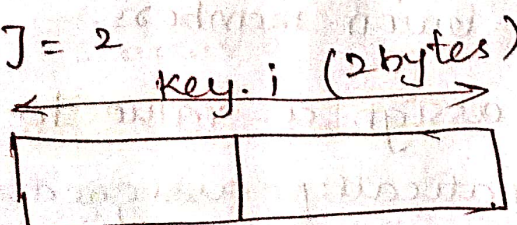 J = 2
key.i (2bytes)